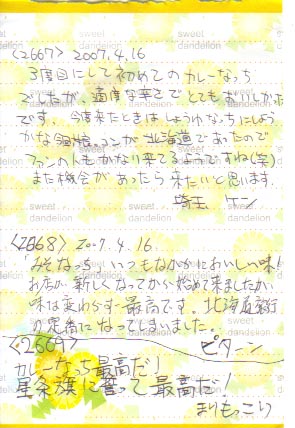 sweet dandelion
<2667> 2007.4.16
3度目にして初めてのカレーなっち
でしたが、適度な辛さで とてもおいしかった
です。 今度来たときは しょうゆなっちにしよう
かな 銀魂コンが北海道であったので
ファンの人もかなり来てるようですね(笑)
また機会があったら来たいと思います。
埼玉
sweet dandelion
<2668> 2007.4.16.
「みそなっち」 いつもなかかにおいしい味!
お店が新しくなってから始めて来ましたが、
味は変わらず最高です。北海道旅行
の定番になってしまいました。
<2669> ピターン
カレーなっち最高だ!
星条旗に誓って最高だ!
まりもっこり